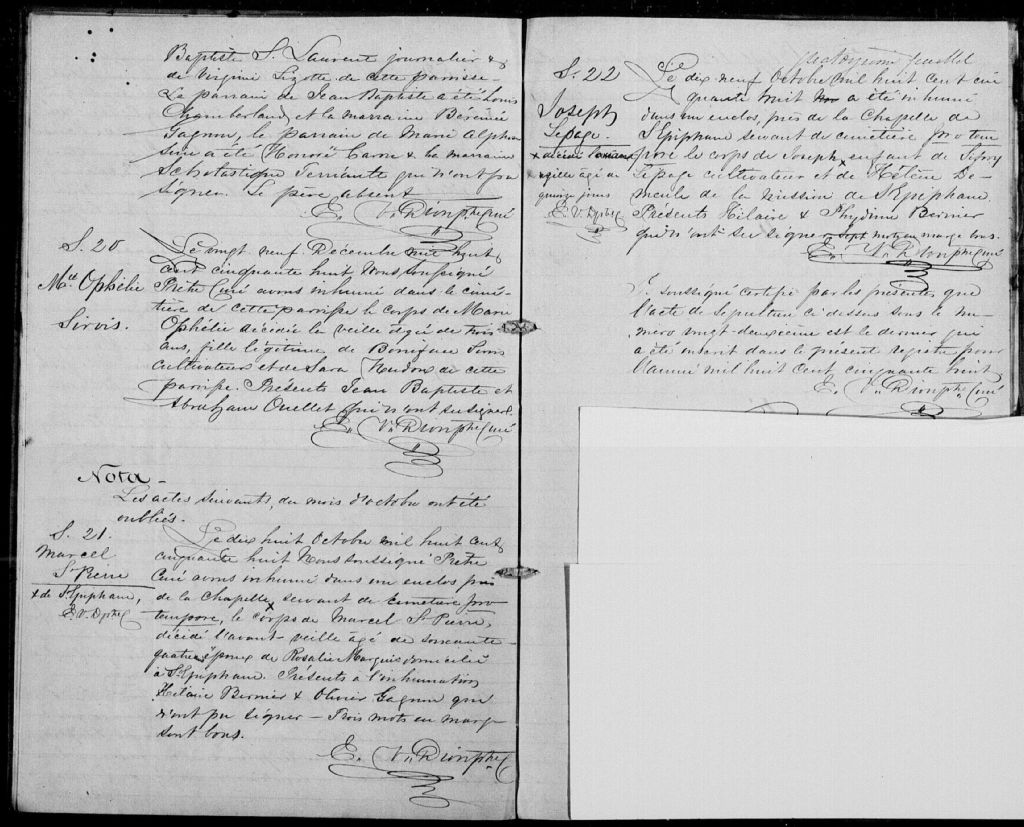 Baptiste St Laurent journalier &
de Virginie Lizotte de cette paroisse.
Le parrain de Jean Baptiste a été Louis
Chamberland et la marraine Bérénice
Gagnon, le parrain de Marie Alphon
sine a été Honoré Caron & la marraine
Scholastique Terriault qui n'ont pu
signer. Le père absent
E. Vn Dion ptre Curé
S. 20
Mie Ophélie
Sirois.
Le vingt neuf Décembre mil huit
cent cinquante huit Nous soussigné
Prêtre Curé avons inhumé dans le cime-
tière de cette paroisse le corps de Marie
Ophélie décédée la veille âgée de trois
ans, fille légitime de Boniface Sirois
Cultivateur et de Sara de cette
paroisse. Présents Jean Baptiste et
Abraham Ouellet qui n'ont su signer.
E. Vn Dion ptre Curé
Nota -
Les actes suivants, du mois d'octobre ont été
oubliés.
S. 21.
Marcel
St Pierre
+ de St Epiphane,
E. V. D ptre C
Le dix huit Octobre mil huit cent
cinquante huit Nous soussigné Prêtre
Curé avons inhumé dans un enclos près
de la Chapelle, servant de cimetière pro-
tempore, le corps de Marcel St Pierre,
décédé l'avant-veille âgé de soixante
quatre époux de Rosalie Marquis domicilié
à St Epiphane. Présents à l'inhumation
Hilaire Bernier & Olivier Gagnon qui
n'ont pu signer - Trois mots en marge
sont bons.
E. Vn Dion ptre C
feuillet
S. 22
Joseph
Lepage.
+ décédé
veille âgé de
quinze jours
E. V. D ptre C
Le dix neuf Octobre mil huit cent cin
quante huit a été inhumé
dans un enclos, près de la Chapelle de
St Epiphane servant de cimetière pro tem
pore le corps de Joseph enfant de
Lepage cultivateur et de Hélène De-
meule de la Mission de St Epiphane.
Présents Hilaire & Phydime Bernier
qui n'ont su signer sept mots en marge bons.
E. Vn Dion ptre Curé
Je soussigné certifie par les présentes que
l'acte de sépulture ci dessus sous le nu-
méro vingt-deuxième est le dernier qui
a été inscrit dans le présent registre pour
l'année mil huit cent cinquante huit
E. Vn Dion ptre Curé